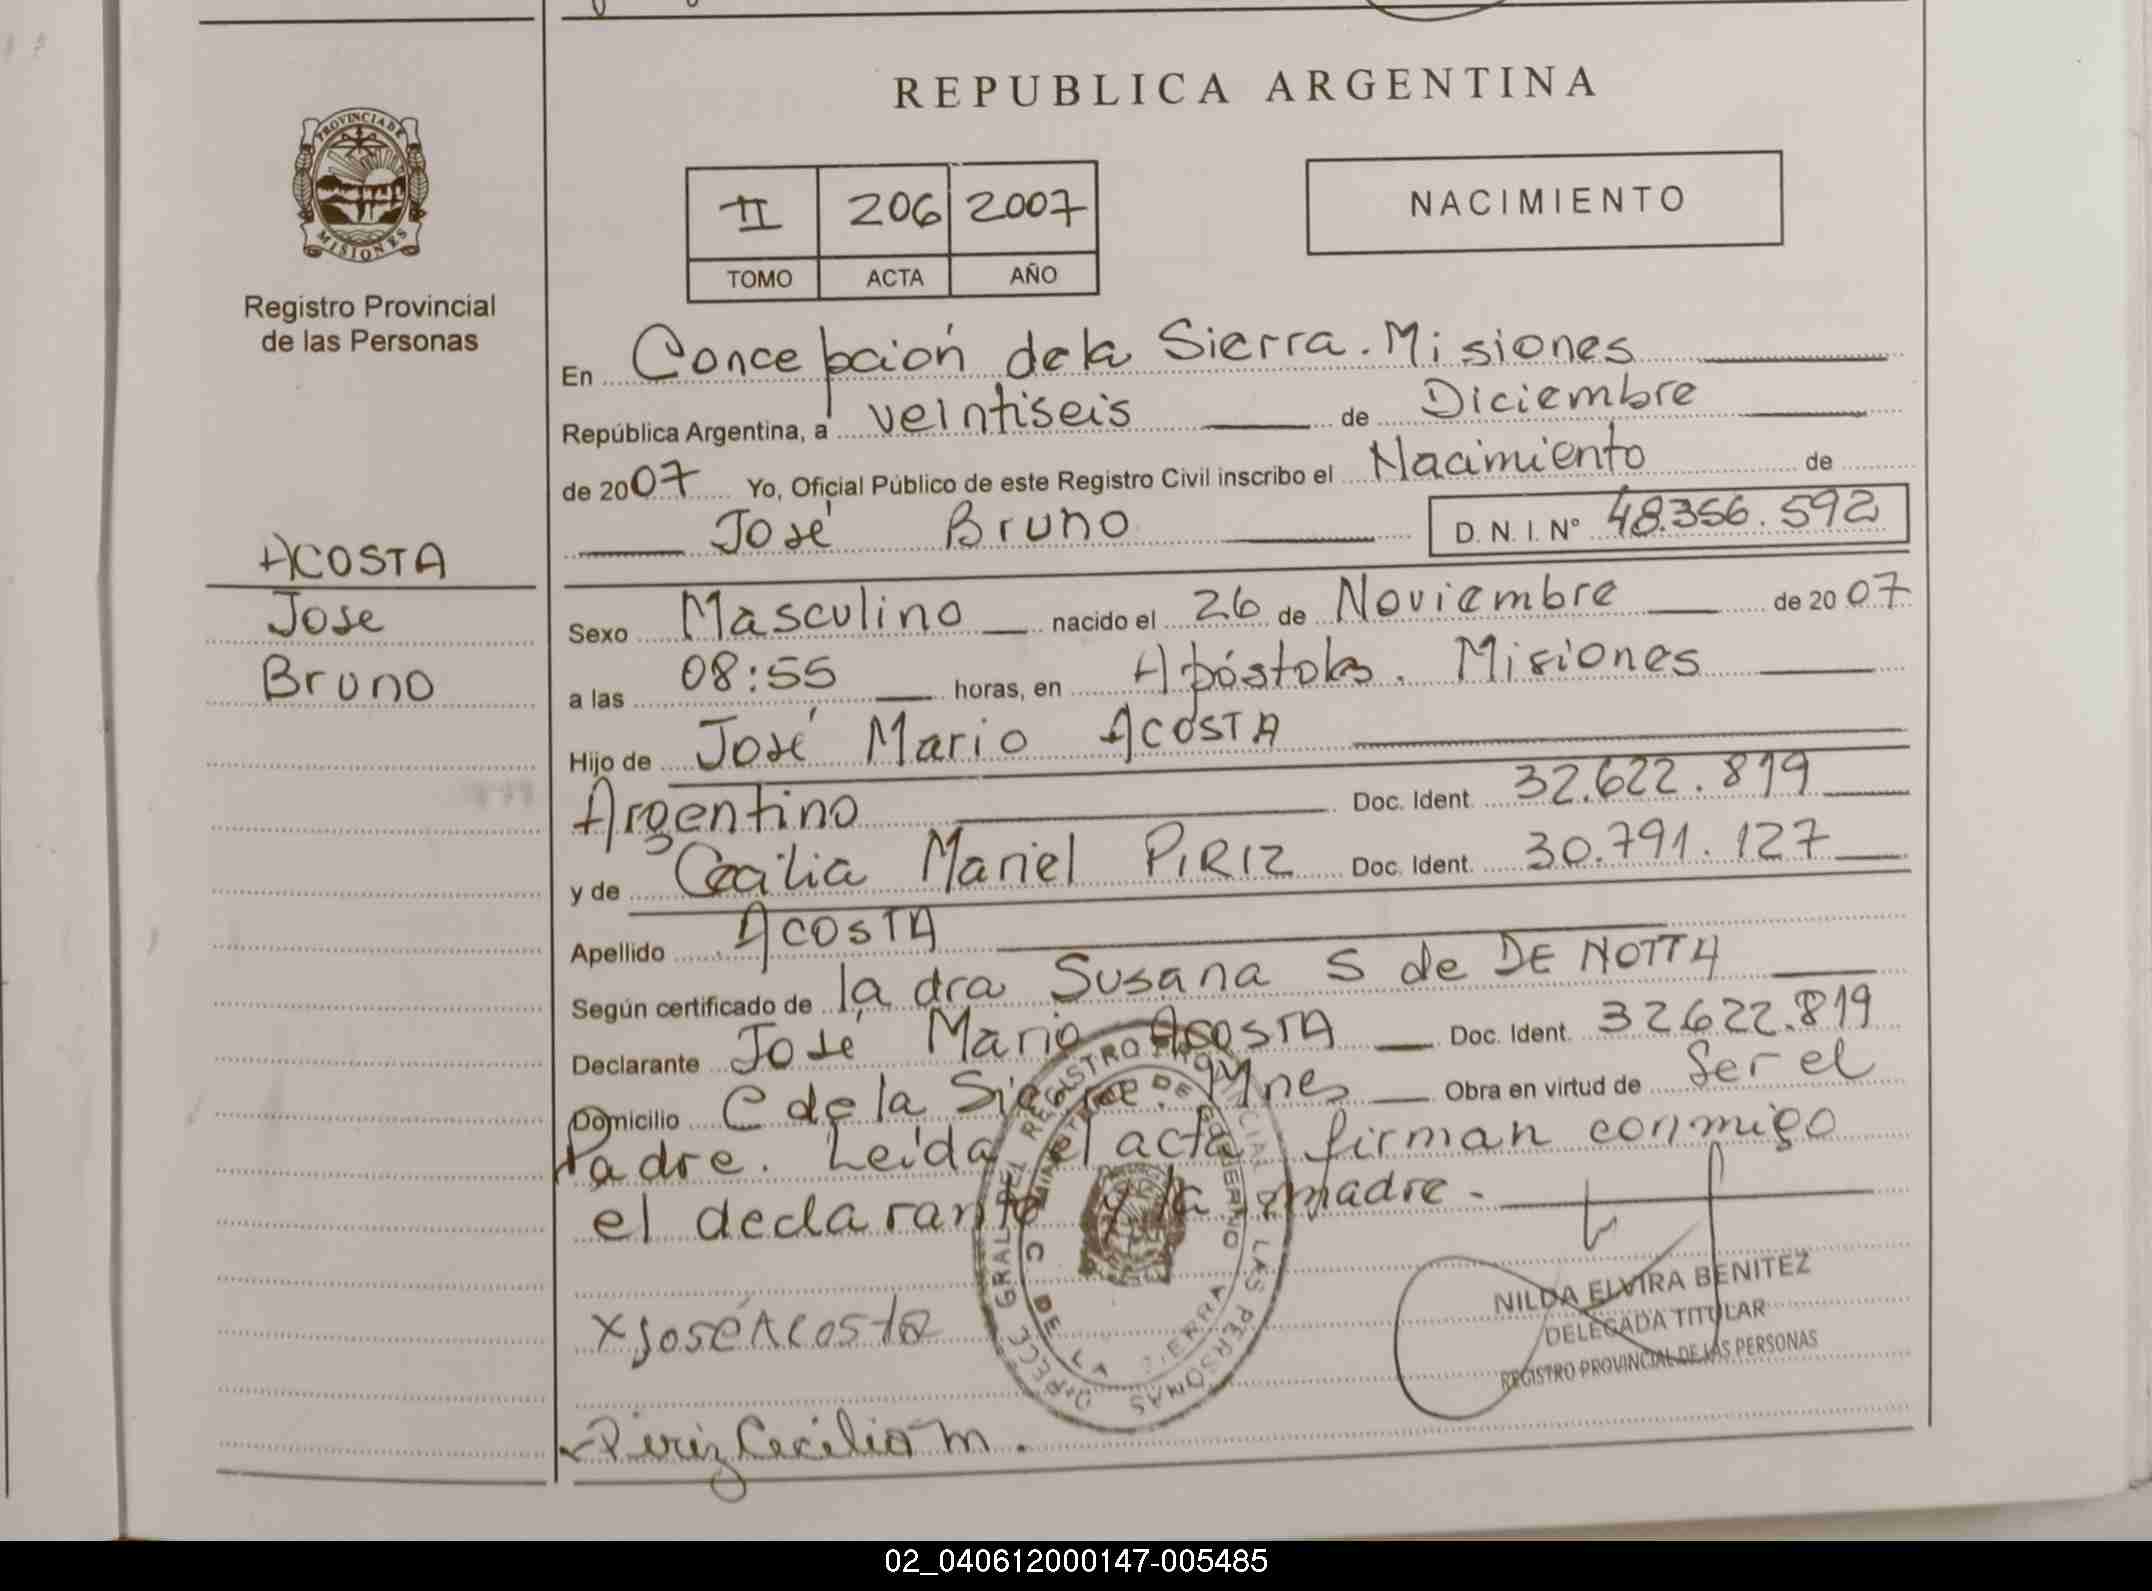 REPUBLICA ARGENTINA
PROVINCIA DE MISIONES
Registro Provincial
de las Personas
II 206 2007
TOMO ACTA AÑO
NACIMIENTO
En Concepción de la Sierra. Misiones
República Argentina, a veintiseis de Diciembre
de 2007 Yo, Oficial Público de este Registro Civil inscribo el Nacimiento de
José Bruno D. N. I. Nº 48.356.592
ACOSTA
Jose
Bruno
Sexo Masculino nacido el 26 de Noviembre de 2007
a las 08:55 horas, en Apóstoles. Misiones
Hijo de José Mario ACOSTA
Argentino Doc. Ident. 32.622.819
y de Cecilia Mariel PIRIZ Doc. Ident. 30.791.127
Apellido ACOSTA
Según certificado de la dra Susana S de DE NOTTA
Declarante José Mario ACOSTA Doc. Ident. 32622.819
Domicilio C de la Sierra. Mnes Obra en virtud de Ser el
Padre. Leida el acta firman conmigo
el declarante y la madre.
x José Acosta
Piriz Cecilia m.
NILDA ELVIRA BENITEZ
DELEGADA TITULAR
REGISTRO PROVINCIAL DE LAS PERSONAS
02_040612000147-005485